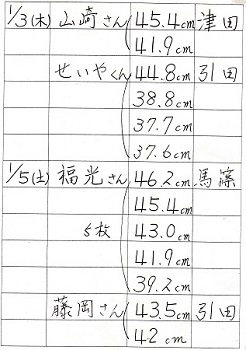 1/3(木) 山崎さん 45.4cm 津田
41.9cm
せいやくん 44.8cm 引田
38.8cm
37.7cm
37.6cm
1/5(土) 福光さん 46.2cm 馬篠
45.4cm
5枚 43.0cm
41.9cm
39.2cm
藤岡さん 43.5cm 引田
42cm